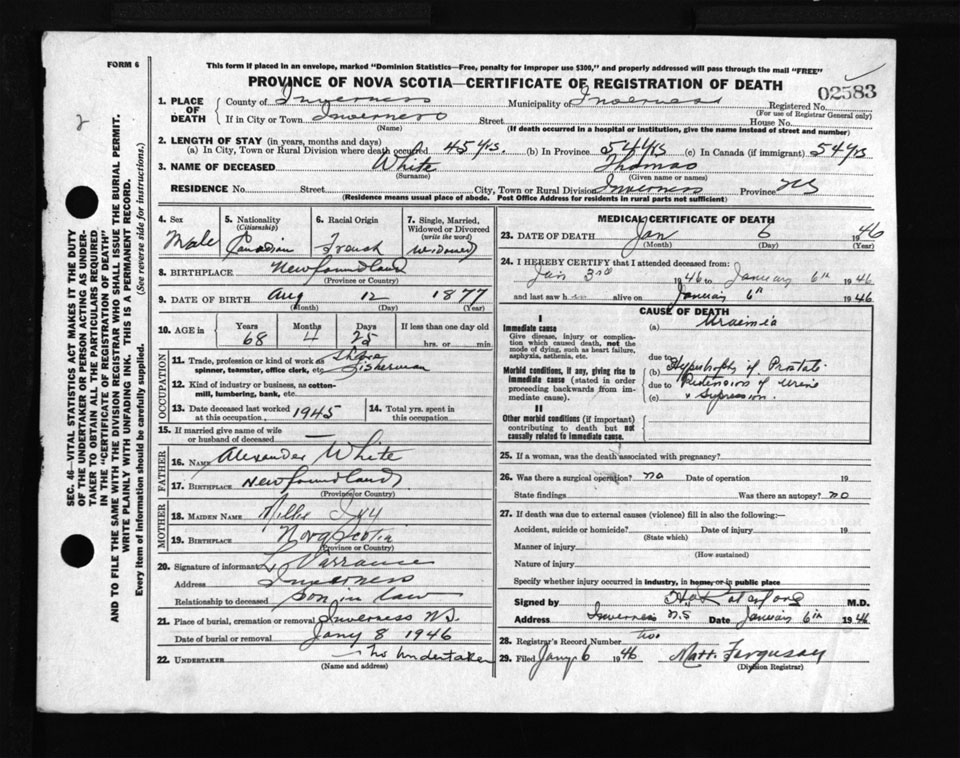 FORM 6
This form if placed in an envelope, marked "Dominion Statistics—Free, penalty for improper use $300," and properly addressed will pass through the mail "FREE"
PROVINCE OF NOVA SCOTIA—CERTIFICATE OF REGISTRATION OF DEATH
02583
2
SEC. 46—VITAL STATISTICS ACT MAKES IT THE DUTY
OF THE UNDERTAKER OR PERSON ACTING AS UNDER-
TAKER TO OBTAIN ALL THE PARTICULARS REQUIRED
IN THE "CERTIFICATE OF REGISTRATION OF DEATH"
AND TO FILE THE SAME WITH THE DIVISION REGISTRAR WHO SHALL ISSUE THE BURIAL PERMIT.
WRITE PLAINLY WITH UNFADING INK. THIS IS A PERMANENT RECORD.
Every item of information should be carefully supplied. (See reverse side for instructions.)
1. PLACE OF DEATH
County of Inverness Municipality of Inverness Registered No.
(For use of Registrar General only)
If in City or Town Inverness Street House No.
(Name) (If death occurred in a hospital or institution, give the name instead of street and number)
2. LENGTH OF STAY (in years, months and days)
(a) In City, Town or Rural Division where death occurred 45 yrs. (b) In Province 54 yrs (c) In Canada (if immigrant) 54 yrs
3. NAME OF DECEASED White Thomas
(Surname) (Given name or names)
RESIDENCE No. Street City, Town or Rural Division Inverness Province NS
(Residence means usual place of abode. Post Office Address for residents in rural parts not sufficient)
4. Sex
Male
5. Nationality
(Citizenship)
Canadian
6. Racial Origin
French
7. Single, Married,
Widowed or Divorced
(write the word)
Widowed
8. BIRTHPLACE Newfoundland
(Province or Country)
9. DATE OF BIRTH Aug 12 1877
(Month) (Day) (Year)
10. AGE in
Years Months Days If less than one day old
68 4 25 hrs. or min.
OCCUPATION
11. Trade, profession or kind of work as
spinner, teamster, office clerk, etc. Fisherman
12. Kind of industry or business, as cotton-
mill, lumbering, bank, etc.
13. Date deceased last worked
at this occupation 1945
14. Total yrs. spent in
this occupation
15. If married give name of wife
or husband of deceased —
FATHER
16. Name Alexander White
17. Birthplace Newfoundland
(Province or Country)
MOTHER
18. Maiden Name Ivy
19. Birthplace Nova Scotia
(Province or Country)
20. Signature of informant
Address Inverness
Relationship to deceased Son in law
21. Place of burial, cremation or removal Inverness N.S.
Date of burial or removal Jany 8 1946
22. UNDERTAKER No Undertaker
(Name and address)
MEDICAL CERTIFICATE OF DEATH
23. DATE OF DEATH Jan 6 1946
(Month) (Day) (Year)
24. I HEREBY CERTIFY that I attended deceased from:
Jan 3rd 1946 to January 6th 1946
and last saw h alive on January 6th 1946
CAUSE OF DEATH
I
Immediate cause
Give disease, injury or complica-
tion which caused death, not the
mode of dying, such as heart failure,
asphyxia, asthenia, etc.
(a) Uraemia
Morbid conditions, if any, giving rise to
immediate cause (stated in order
proceeding backwards from im-
mediate cause).
due to
(b) Hypertrophy of Prostate
due to Retension of Urine
(c) & Supression.
II
Other morbid conditions (if important)
contributing to death but not
causally related to immediate cause.
25. If a woman, was the death associated with pregnancy?
26. Was there a surgical operation? no Date of operation 19
State findings Was there an autopsy? no
27. If death was due to external causes (violence) fill in also the following:—
Accident, suicide or homicide? Date of injury 19
(State which)
Manner of injury
(How sustained)
Nature of injury
Specify whether injury occurred in industry, in home, or in public place
Signed by M.D.
Address Inverness N.S Date January 6th 1946
28. Registrar's Record Number two
29. Filed Jany 6 1946 Matt. Ferguson
(Division Registrar)